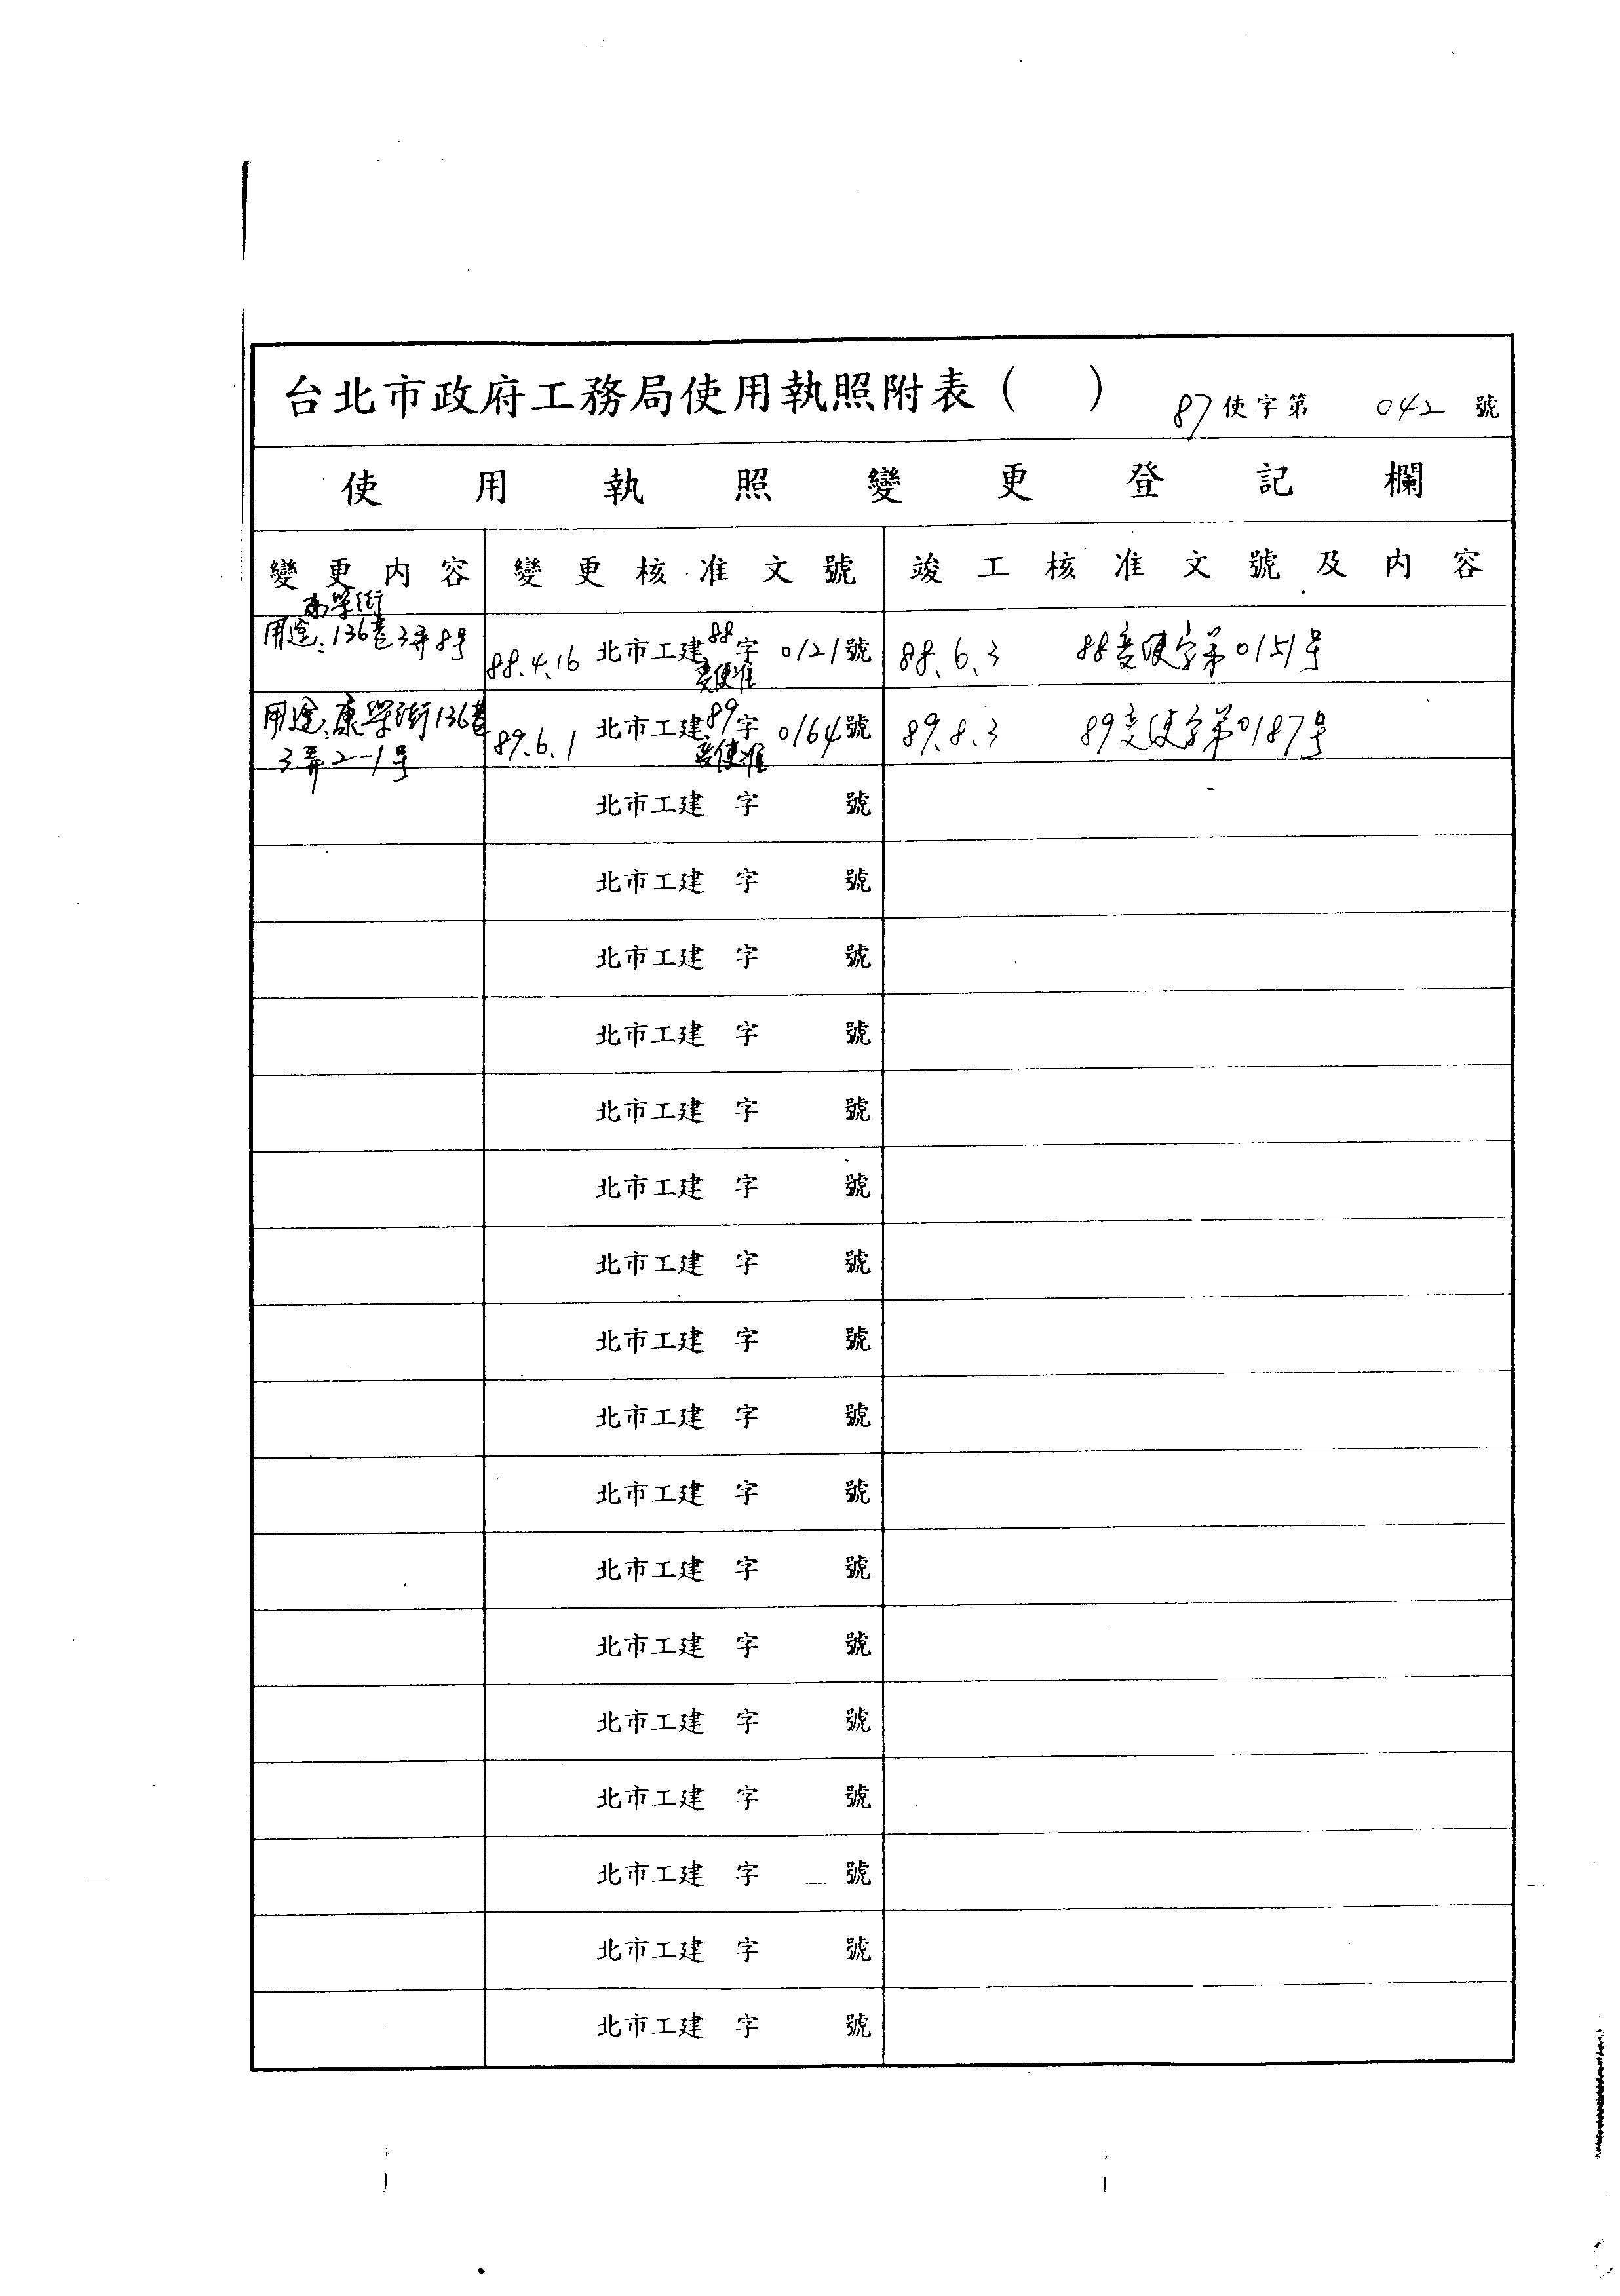 台北市政府工務局使用執照附表(　) 87使字第 042 號
使用執照變更登記欄
變更內容 變更核准文號 竣工核准文號及內容
康樂街
用途:136巷3弄8号 88.4.16 北市工建88字 0121號 88.6.3 88變使字第0151号
變使准
用途:康樂街136巷 89.6.1 北市工建89字 0164號 89.8.3 89變使字第0187号
3弄2-1号 變使准
北市工建 字 號
北市工建 字 號
北市工建 字 號
北市工建 字 號
北市工建 字 號
北市工建 字 號
北市工建 字 號
北市工建 字 號
北市工建 字 號
北市工建 字 號
北市工建 字 號
北市工建 字 號
北市工建 字 號
北市工建 字 號
北市工建 字 號
北市工建 字 號
北市工建 字 號